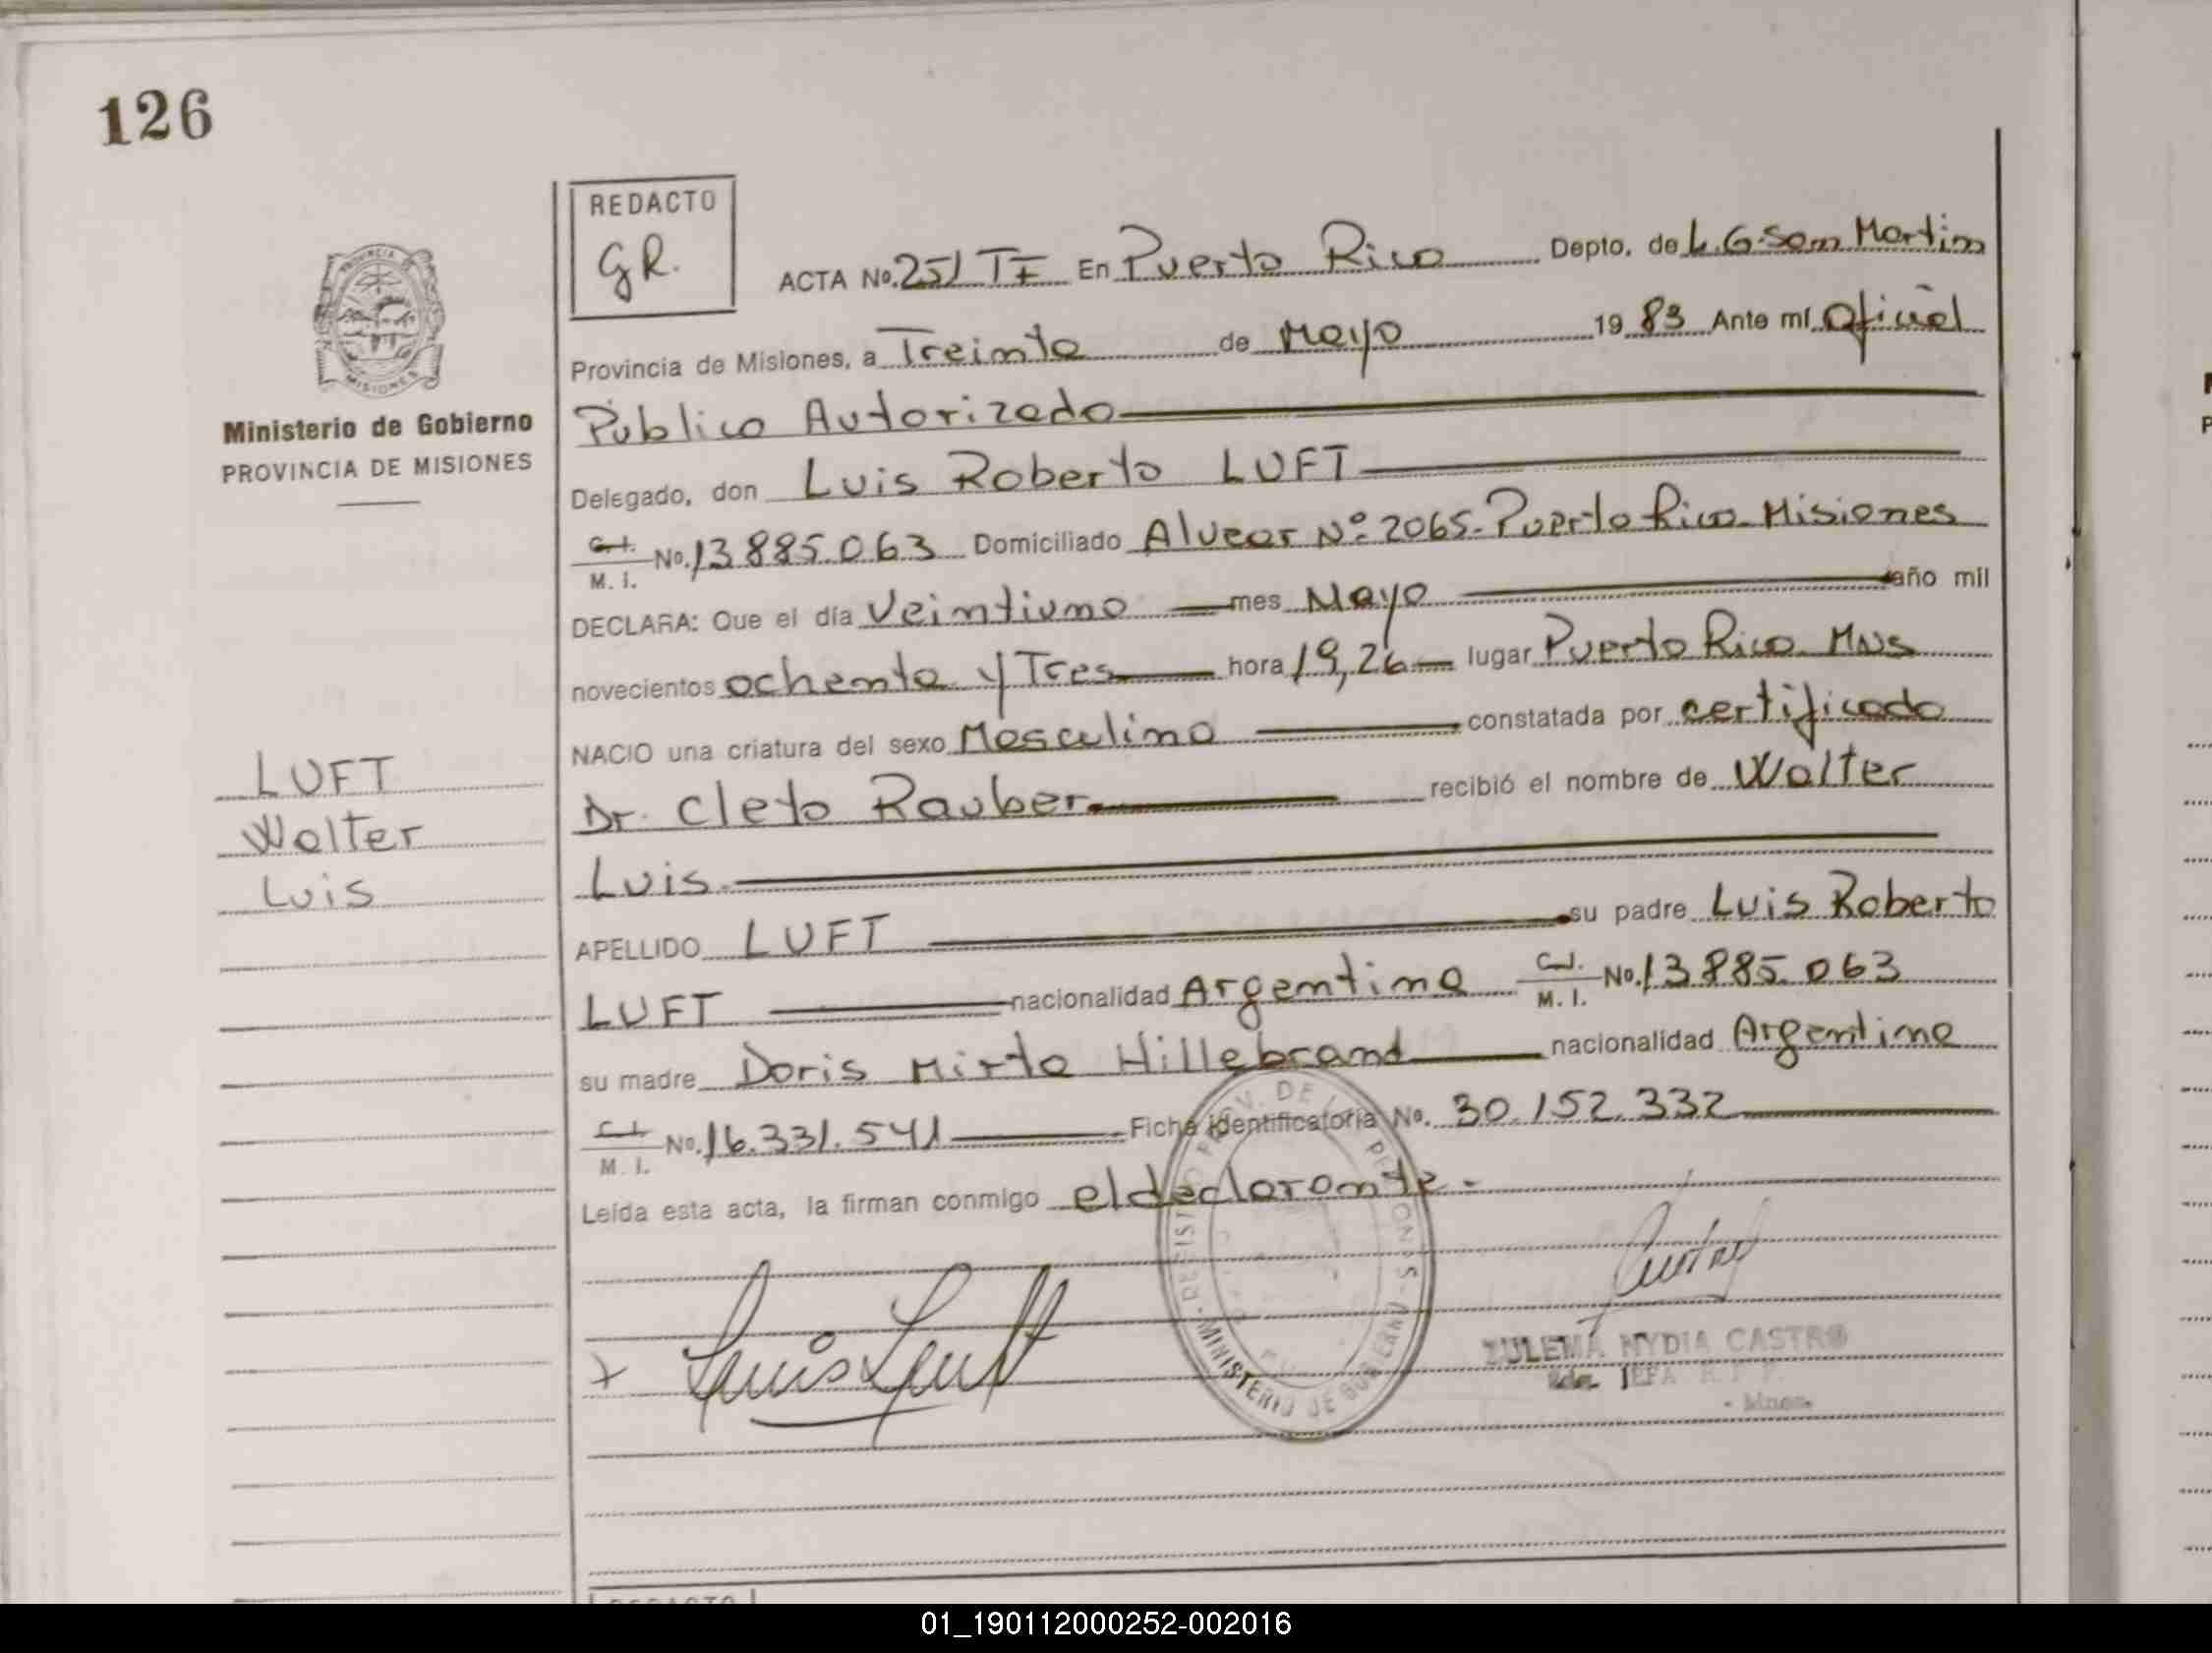 126
REDACTO
GR.
ACTA No. 251 TF En Puerto Rico Depto. de L.G. San Martin
Provincia de Misiones, a Treinta de Mayo 19 83 Ante mí Oficial
Público Autorizado
Delegado, don Luis Roberto LUFT
C.I. M.I. No. 13885.063 Domiciliado Alvear Nº 2065- Puerto Rico- Misiones
DECLARA: Que el día Veintiuno mes Mayo año mil
novecientos ochenta y Tres hora 19,26 lugar Puerto Rico- MNS
NACIO una criatura del sexo Masculino constatada por certificado
Dr. Cleto Rauber recibió el nombre de Walter
Luis
APELLIDO LUFT su padre Luis Roberto
LUFT nacionalidad Argentina C.I. M.I. No. 13885.063
su madre Doris Mirta Hillebrand nacionalidad Argentina
C.I. M.I. No. 16.331.541 Ficha Identificatoria No. 30.152.332
Leída esta acta, la firman conmigo el declarante.-
Luis Luft
ZULEMA NYDIA CASTRO
JEFA
MINISTERIO DE GOBIERNO
PROVINCIA DE MISIONES
Ministerio de Gobierno
PROVINCIA DE MISIONES
LUFT
Walter
Luis
REDACTO
01_190112000252-002016